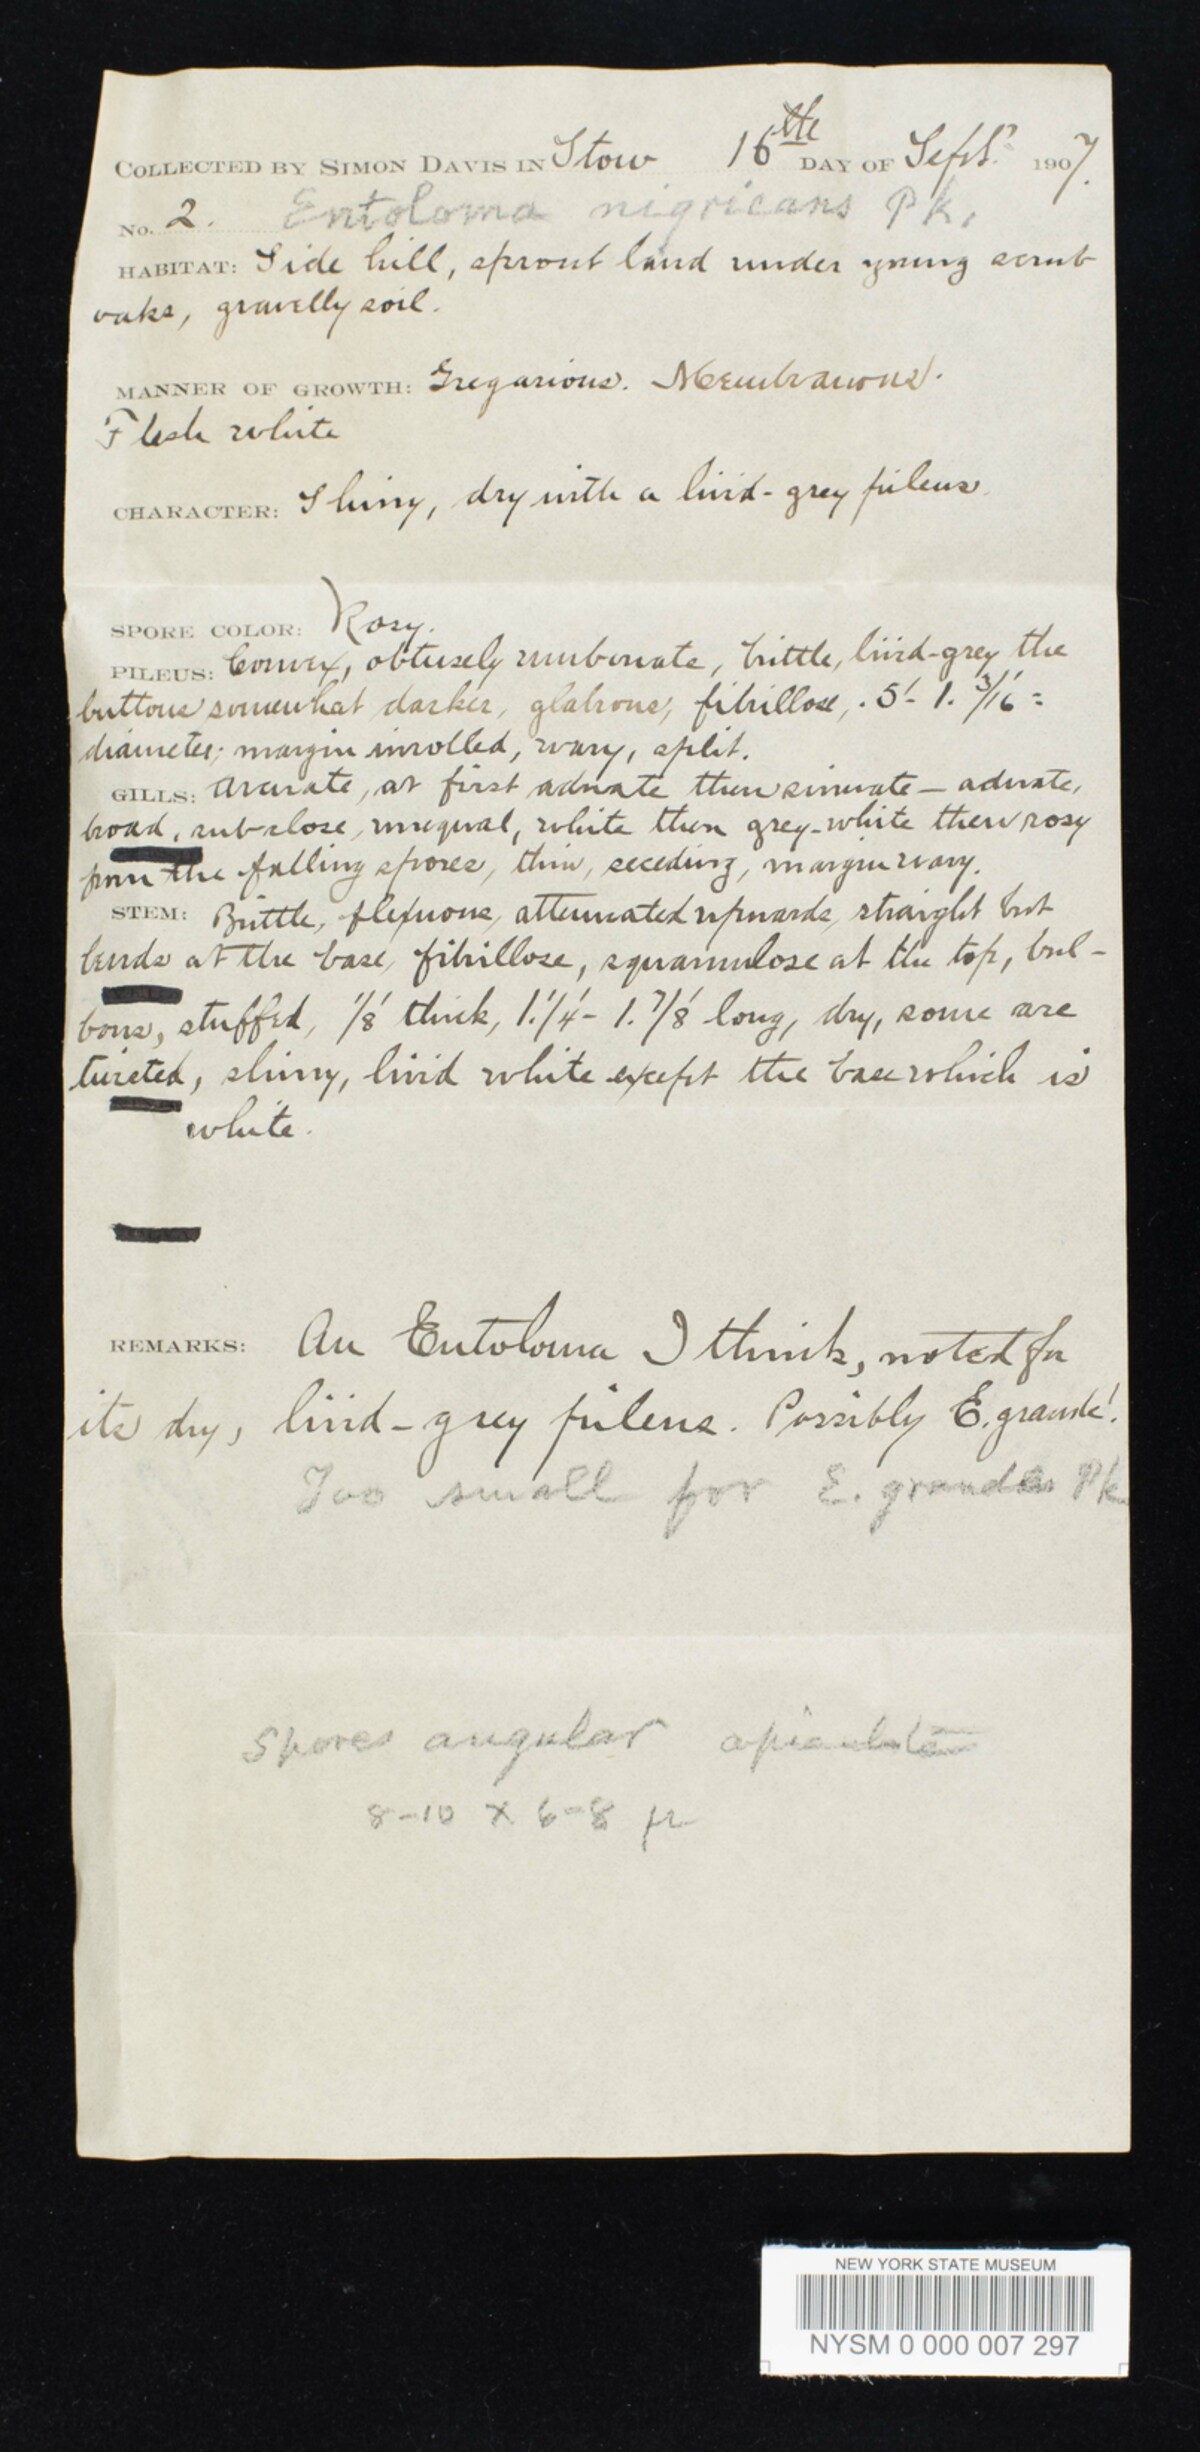 COLLECTED BY SIMON DAVIS IN Stow 16th DAY OF Sept. 1907.
No. 2. Entoloma nigricans Pk.
HABITAT: Side hill, sprout land under young scrub
oaks, gravelly soil.
MANNER OF GROWTH: Gregarious. Membranous.
Flesh white
CHARACTER: Shiny, dry with a livid-grey pileus.
SPORE COLOR: Rosy.
PILEUS: Convex, obtusely umbonate, brittle, livid-grey the
buttons somewhat darker, glabrous, fibrillose, .5'- 1. 3/16'
diameter; margin inrolled, wavy, split.
GILLS: Arcuate, at first adnate then sinuate - adnate,
broad, sub-close, unequal, white then grey-white then rosy
from the falling spores, thin, seceding, margin wavy.
STEM: Brittle, flexuous, attenuated upwards, straight but
bends at the base, fibrillose, squamulose at the top, bul-
bous, stuffed, 1/8' thick, 1.1/4'- 1.7/8' long, dry, some are
twisted, shiny, livid white except the base which is
white.
REMARKS: An Entoloma I think, noted for
its dry, livid-grey pileus. Possibly E. grande!.
Too small for E. grande Pk
Spores angular apiculate
8-10 x 6-8 µ
NEW YORK STATE MUSEUM
NYSM 0 000 007 297